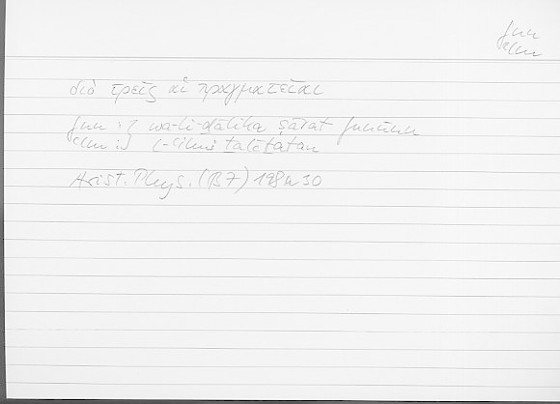 fnn
ʿlm
διὸ τρεῖς αἱ πραγματεῖαι
fnn :? wa-li-ḏālika ṣārat funūnu
ʿlm :? l-ʿilmi ṯalāṯatan
Arist. Phys. (B7) 198a30